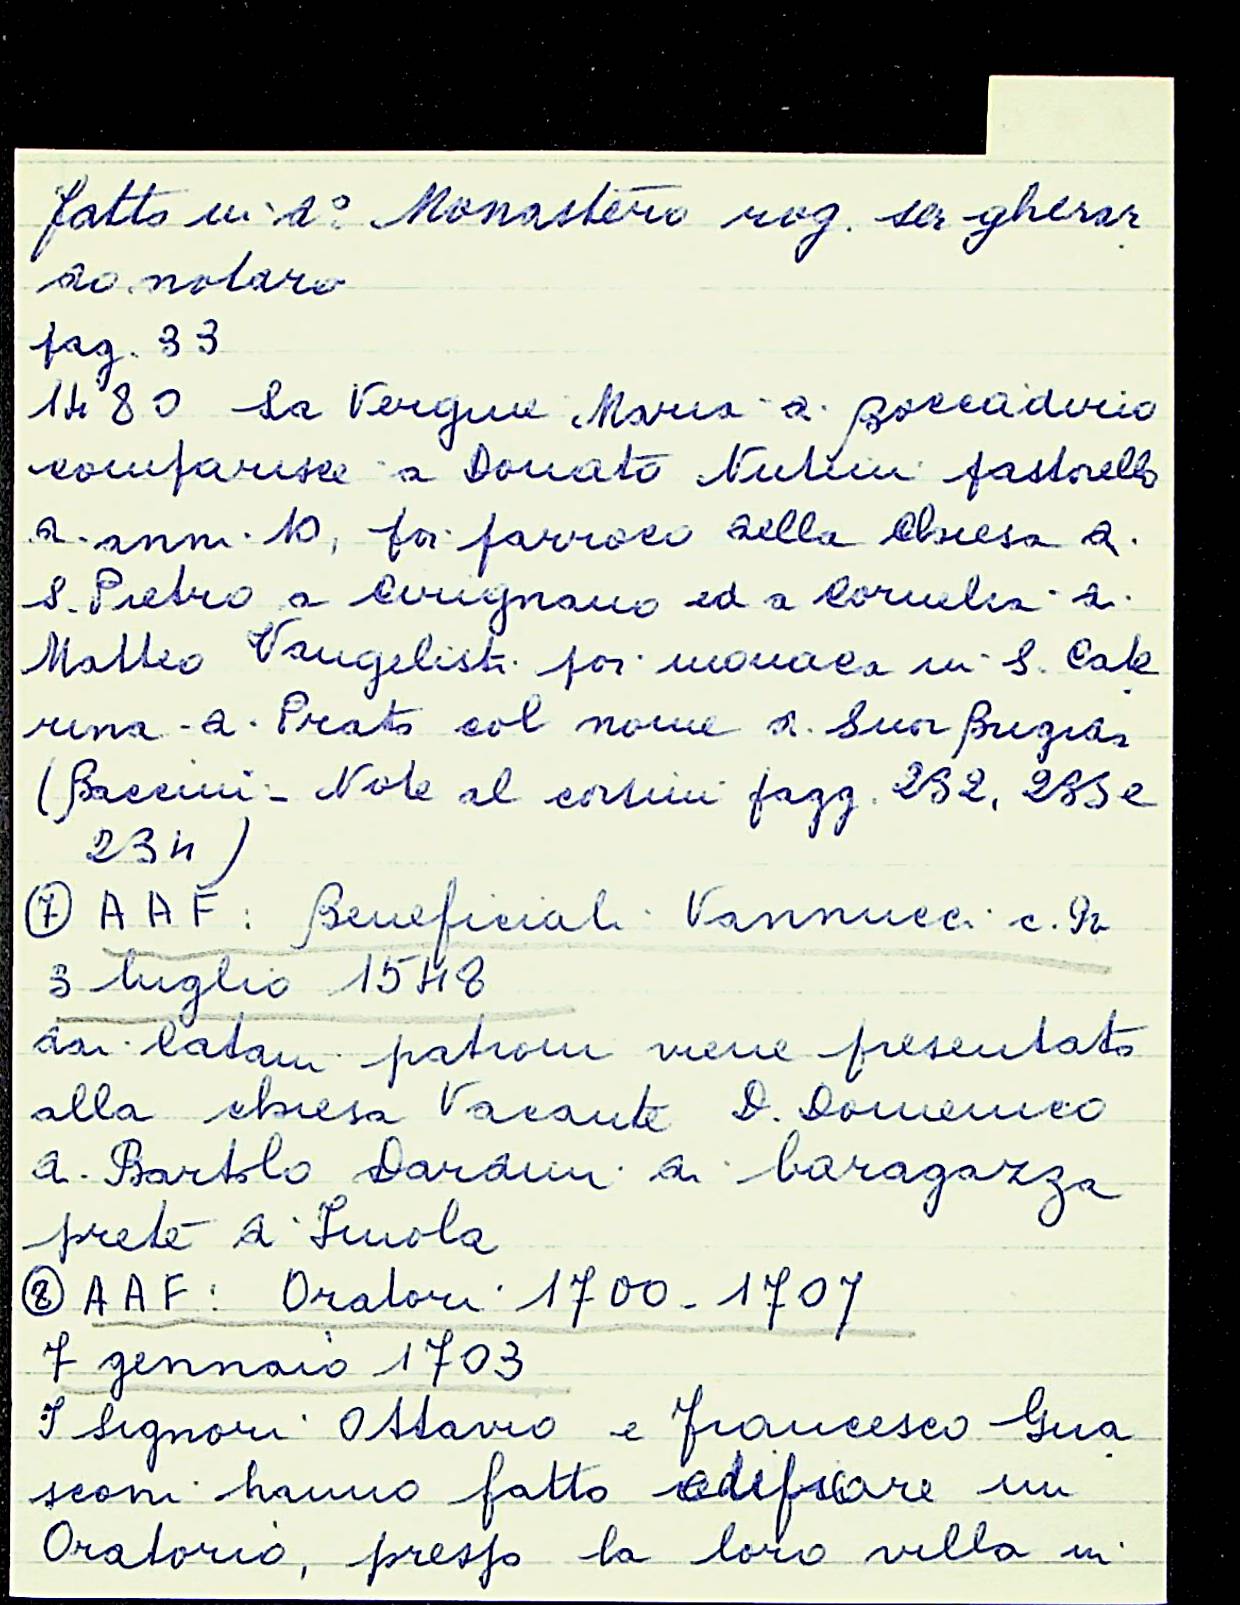 fatto in d° Monastero rog. ser gherar
do notaro
pag. 33
1480 La Vergine Maria di Boccadirio
comparisce a Donato Nutini pastorello
di anni 10, poi parroco della Chiesa di
S. Pietro a Cirignano ed a Cornelia di
Matteo Vangelisti poi monaca in S. Cate
rina di Prato col nome di Suor Brigida
(Baccini - Note al corsini pagg. 232, 233 e
234)
⑦ AAF: Beneficiali Vannucci c. 92
3 luglio 1548
dai Catani patroni viene presentato
alla chiesa Vacante D. Domenico
di Bartolo Dardini di baragazza
prete di Imola
⑧ AAF: Oratori 1700-1707
7 gennaio 1703
I Signori Ottavio e Francesco Gua
sconi hanno fatto edificare un
Oratorio, presso la loro villa in